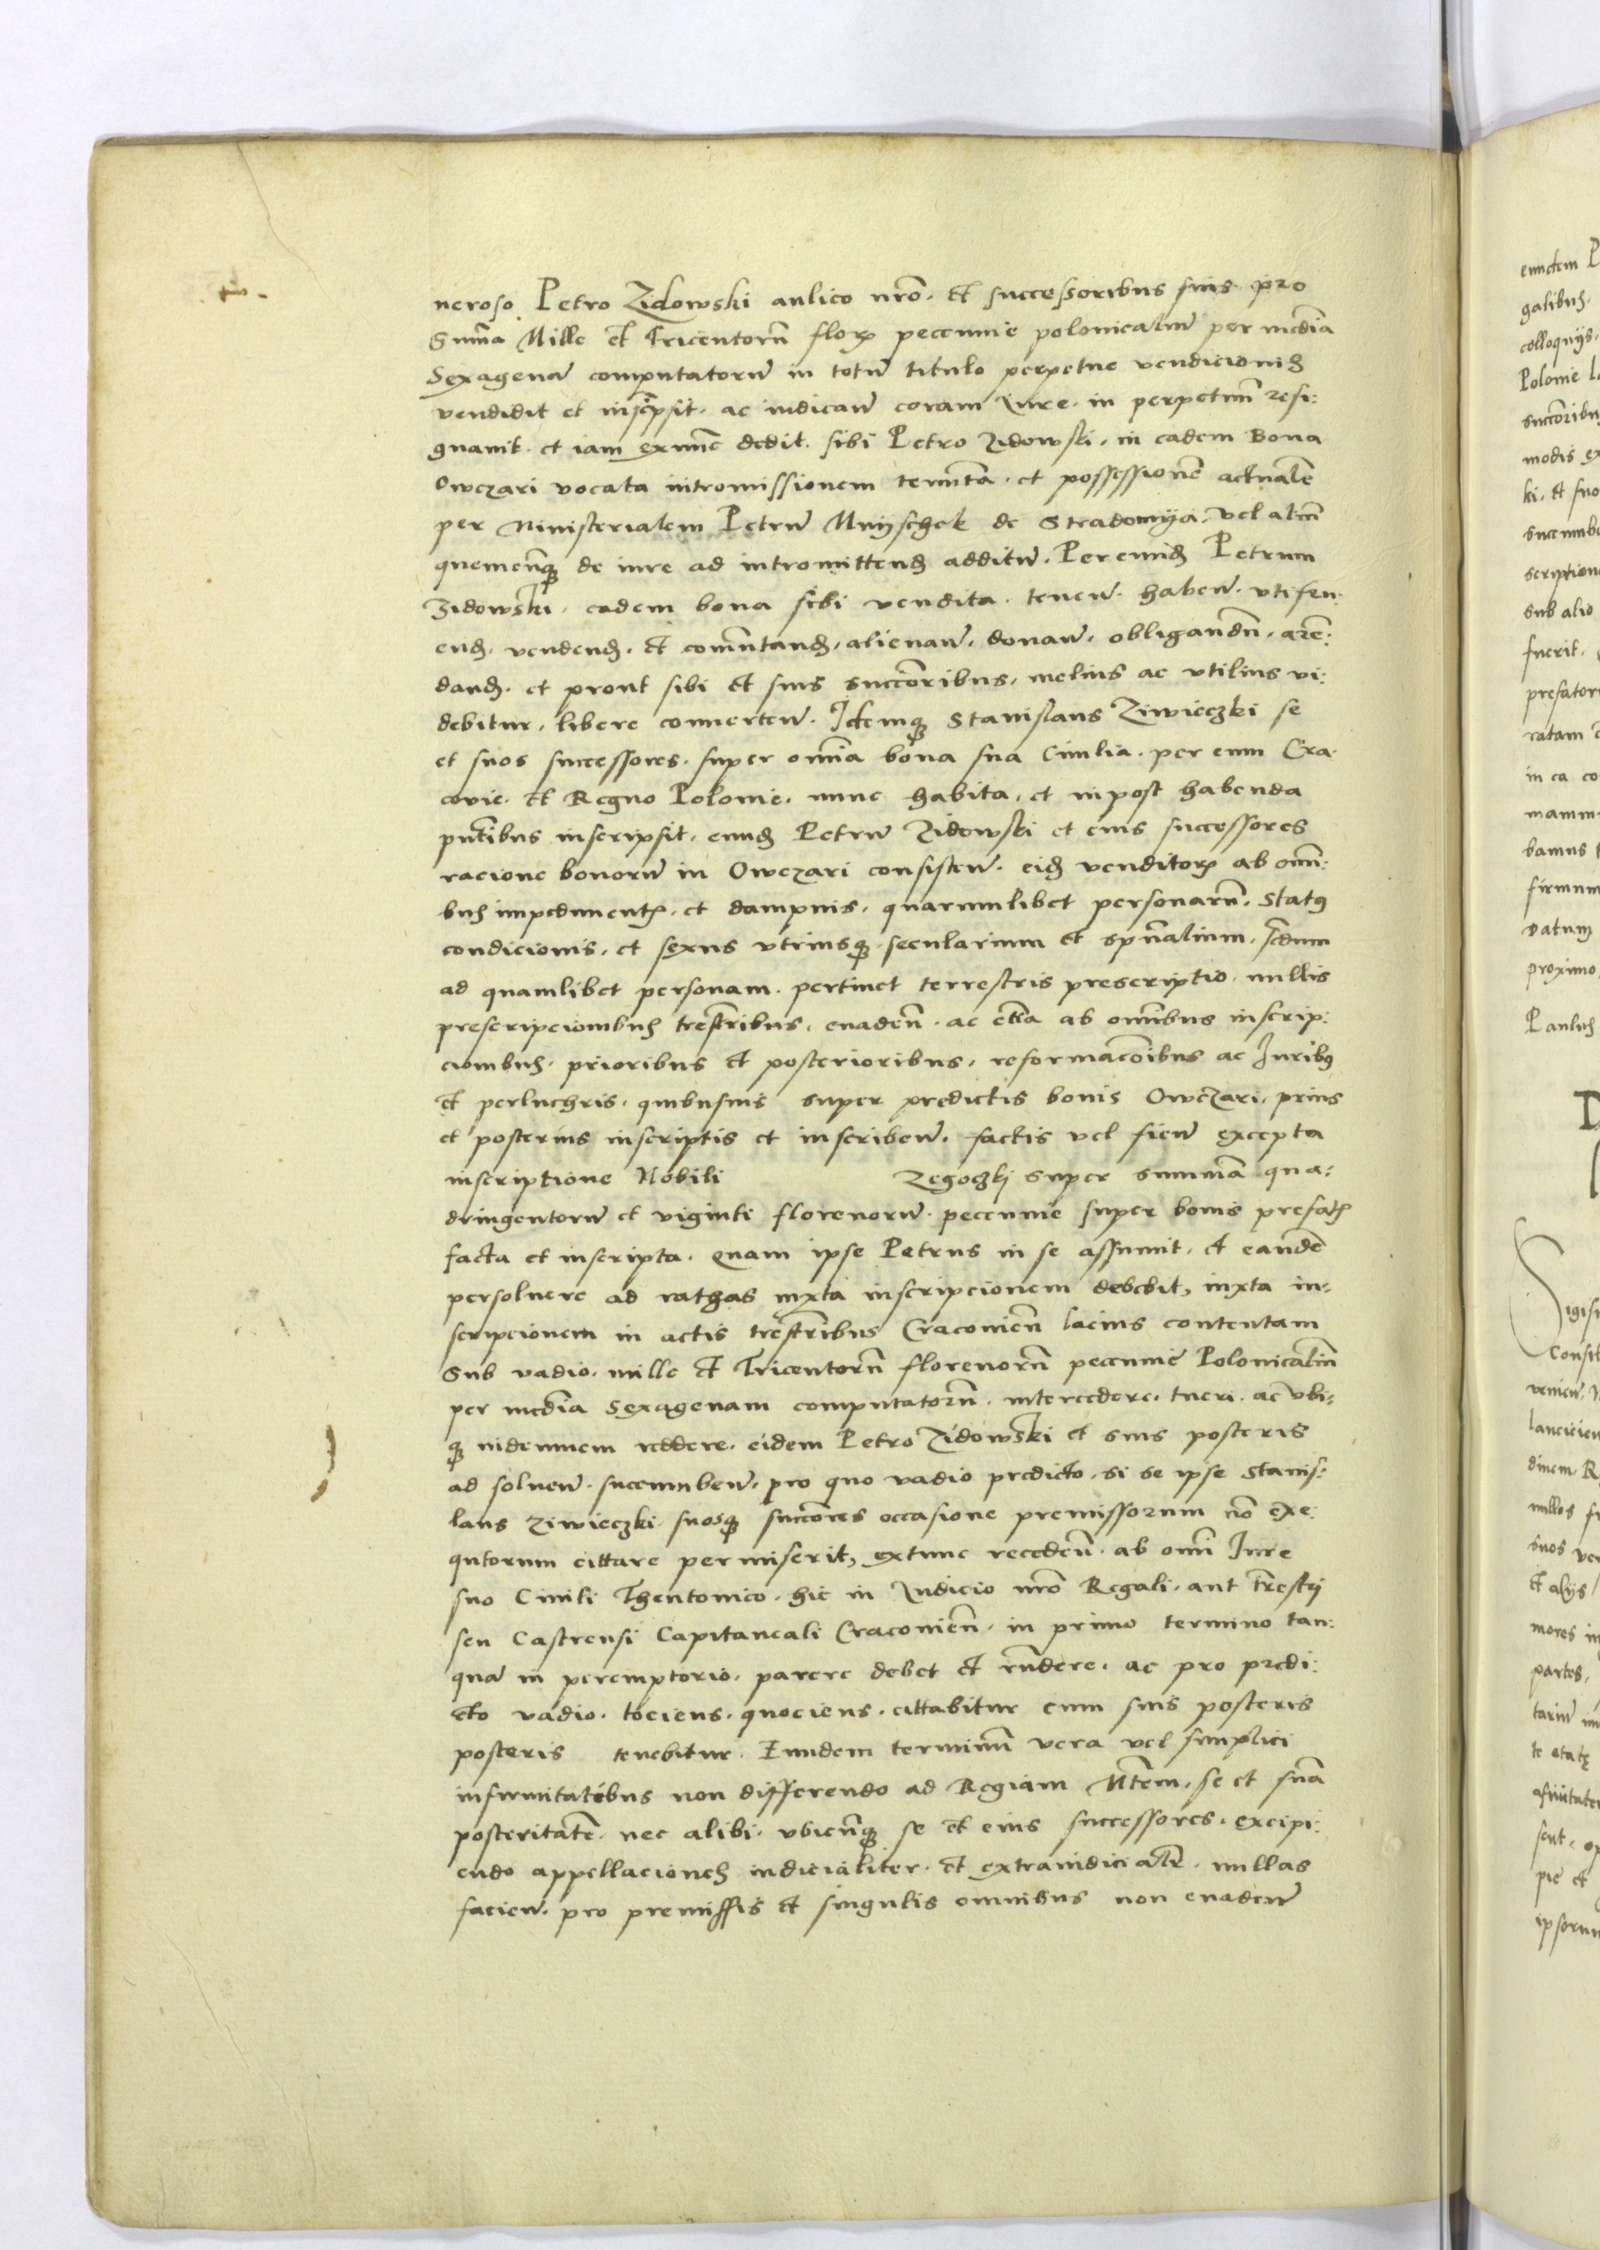 neroso Petro Zidowski aulico nrō. Et successoribus suis pro
Sum̄a Mille et Tricentorū florꝝ peccunie polonicaliū per mediā
Sexagenā computatorū in totū titulo perpetue vendicionis
vendidit et inscripsit. ac iudicaū coram Iure. in perpetuū resi:
gnauit. et iam exnunc dedit. sibi Petro Zidowski. in eadem Bona
Owczari vocata intromissionem tenutā. et possessionē actualē
per Ministerialem Petrū Mnyschek de Stradomya. vel aliū
quemcūqꝫ de iure ad intromittendꝫ additū. Per eundꝫ Petrum
Zidowski. eadem bona sibi vendita. tenen̄. haben̄. vtifru:
endꝫ. vendendꝫ. et com̄utandꝫ. alienan̄. donan̄. obligandū. arē:
dandꝫ. et prout sibi et suis succōribus. melius ac vtilius vi:
debitur. libere conuerten̄. Idemqꝫ Stanislaus Ziwieczki se
et suos successores. super om̄ia bona sua Ciuilia. per eum Cra
couie. et Regno Polonie. nunc habita. et inpost habenda
pn̄tibus inscripsit. eundꝫ Petrū Zidowski et eius successores
racione bonorū in Owczari consisten̄. eidꝫ venditorꝝ ab om̄i:
bus impedimentꝭ. et dampnis. quarumlibet personarū. Statꝰ
condicionis. et sexus vtriusqꝫ secularium et spūalium. scdum
ad quamlibet personam. pertinet terrestris prescriptio. nullis
prescripcionibus trestribus. euaden̄. ac etiā ab omībus inscrip:
cionibus. prioribus et posterioribus. reformacōibus ac Iuribꝰ
et perlucris. quibusuis super predictis bonis Owczari. prius
et posterius inscriptis et inscriben̄. factis vel fien̄ excepta
inscriptione Nobili Zegoczkj super summā qua:
dringentorū et viginti florenorū. peccunie super bonis prefatꝭ
facta et inscripta. quam ipse Petrus in se assumit. et eandē
persoluere ad rathas iuxta inscripcionem debebit, iuxta in:
scripcionem in actis trestribus Cracouien̄ lacius contentam
Sub vadio. mille et Tricentorū florenorū peccunie Polonicaliū
per mediā Sexagenam computatorū. intercedere. tueri. ac vbi:
qꝫ indemnem reddere. eidem Petro Zidowski et suis posteris
ad soluen̄. succumben̄. pro quo vadio predicto. si se ipse Stanis:
laus Ziwieczki. suosqꝫ succōres occasione premissorum nō exe:
qutorum cittare permiserit, extunc receden̄. ab om̄i Iure
suo Ciuili Theutonico. hic in Iudicio nrō Regali. aut trestrj
seu Castrensi Capitaneali Cracouien̄. in primo termino tan:
quā in peremptorio. parere debet et rn̄dere. ac pro predi:
cto vadio. tociens. quociens. cittabitur cum suis posteris
posteris tenebitur. Eundem terminū vera vel simplici
infirmitatibus non differendo ad Regiam Mtem. se et suā
posteritatē. nec alibi. vbicūqꝫ se et eius successores. excipi:
endo appellaciones iudicialiter. et extraiudicialr̄. nullas
facien̄. pro premissis et singulis omnibus non euaden̄